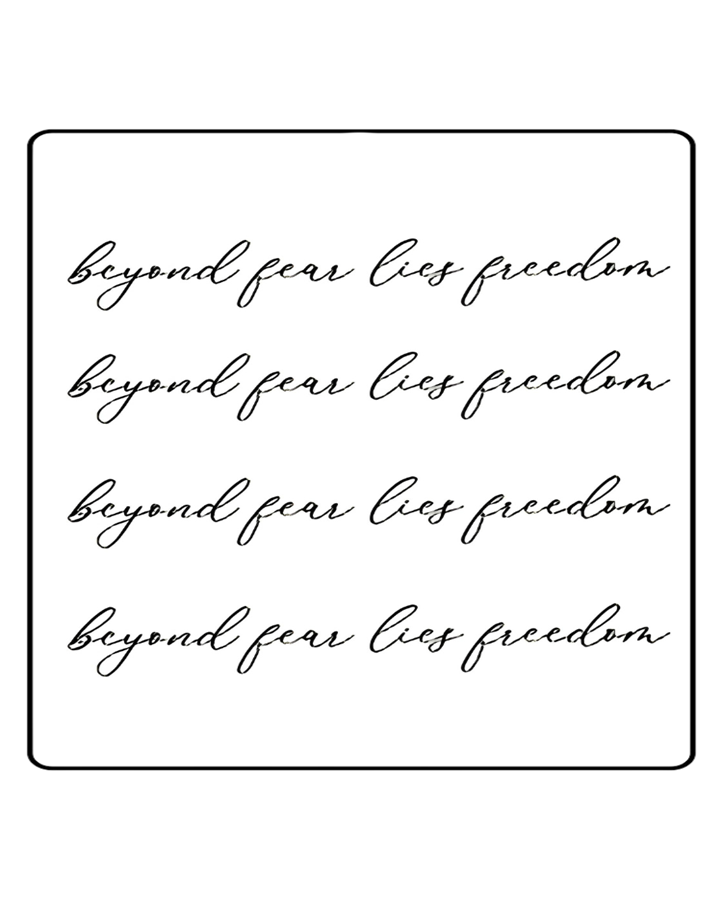 beyond fear lies freedom
beyond fear lies freedom
beyond fear lies freedom
beyond fear lies freedom